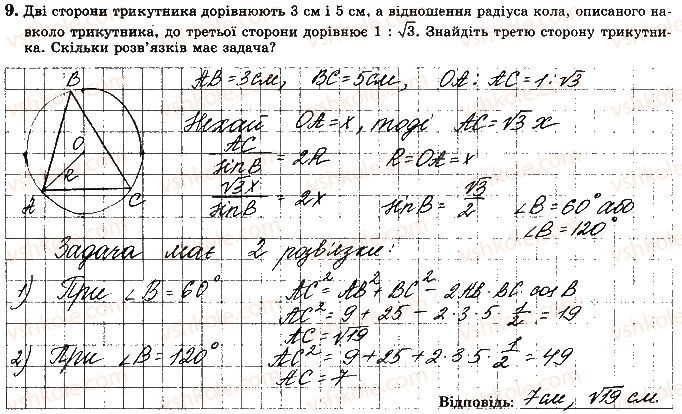 9. Дві сторони трикутника дорівнюють 3 см і 5 см, а відношення радіуса кола, описаного на-
вколо трикутника, до третьої сторони дорівнює 1 : √3. Знайдіть третю сторону трикутни-
ка. Скільки розв'язків має задача?
AB=3см, BC=5см, OA:AC=1:√3
Нехай OA=x, тоді AC=√3 x
AC/sinB = 2R R=OA=x
√3x/sinB = 2x sinB=√3/2 ∠B=60° або
∠B=120°
Задача має 2 розв'язки:
1) При ∠B=60° AC²=AB²+BC²-2AB·BC·cosB
AC²=9+25-2·3·5·1/2=19
AC=√19
2) При ∠B=120° AC²=9+25+2·3·5·1/2=49
AC=7
Відповідь: 7см, √19 см
B
O
R
A
C
vshkole.com